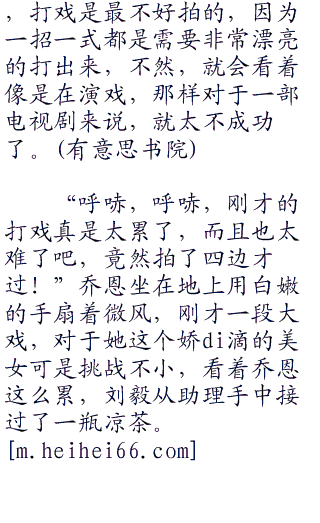 ，打戏是最不好拍的，因为
一招一式都是需要非常漂亮
的打出来，不然，就会看着
像是在演戏，那样对于一部
电视剧来说，就太不成功
了。(有意思书院)
“呼哧，呼哧，刚才的
打戏真是太累了，而且也太
难了吧，竟然拍了四边才
过！”乔恩坐在地上用白嫩
的手扇着微风，刚才一段大
戏，对于她这个娇di滴的美
女可是挑战不小，看着乔恩
这么累，刘毅从助理手中接
过了一瓶凉茶。
[m.heihei66.com]